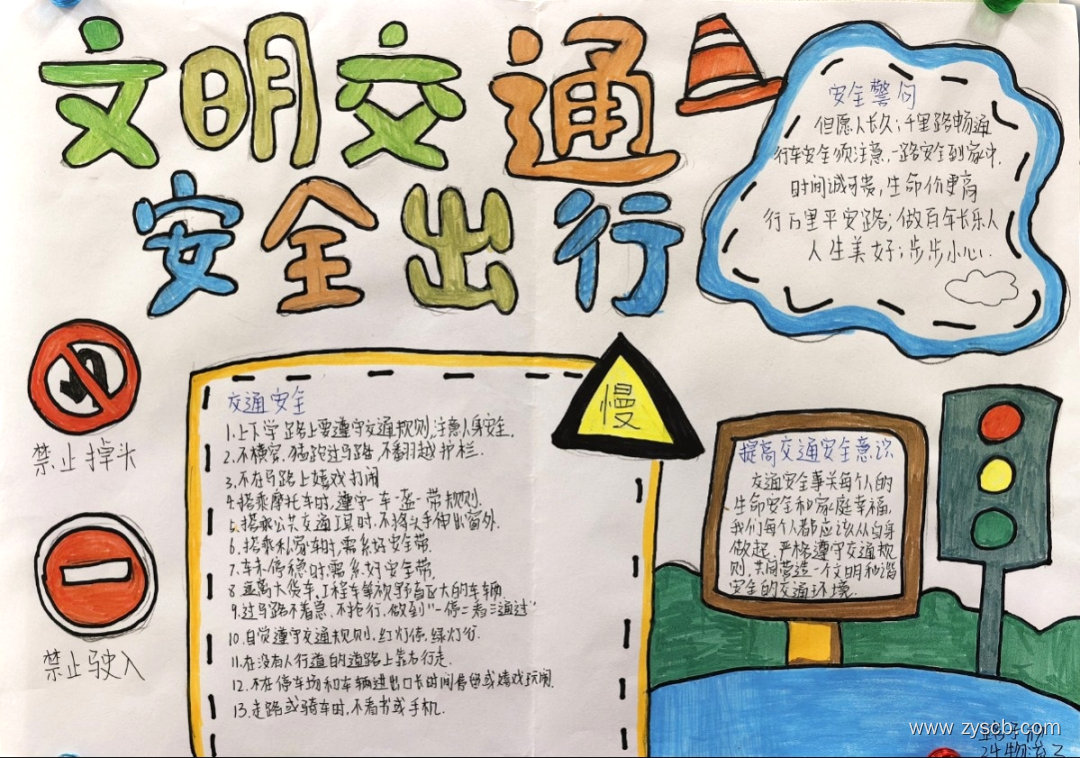 文明交通
安全出行
安全警句
但愿人长久;千里路畅通
行车安全须注意,一路安全到家中.
时间诚可贵,生命价更高
行万里平安路;做百年长乐人
人生美好;步步小心.
禁止掉头
禁止驶入
慢
交通安全
1.上下学路上要遵守交通规则,注意人身安全.
2.不横穿、猛跑过马路,不翻越护栏.
3.不在马路上嬉戏打闹
4.搭乘摩托车时,遵守一车一盔一带规则.
5.搭乘公共交通工具时,不将头手伸出窗外.
6.搭乘私家车时,需系好安全带.
7.车未停稳时需系好安全带.
8.远离大货车,工程车等视野盲区大的车辆
9.过马路不着急、不抢行,做到"一停二看三通过"
10.自觉遵守交通规则,红灯停,绿灯行.
11.在没有人行道的道路上靠右行走.
12.不在停车场和车辆进出口长时间停留或嬉戏玩闹.
13.走路或骑车时,不看书或手机.
提高交通安全意识
交通安全事关每个人的
生命安全和家庭幸福,
我们每个人都应该从自身
做起,严格遵守交通规
则,共同营造一个文明和谐
安全的交通环境.
www.zyscb.com